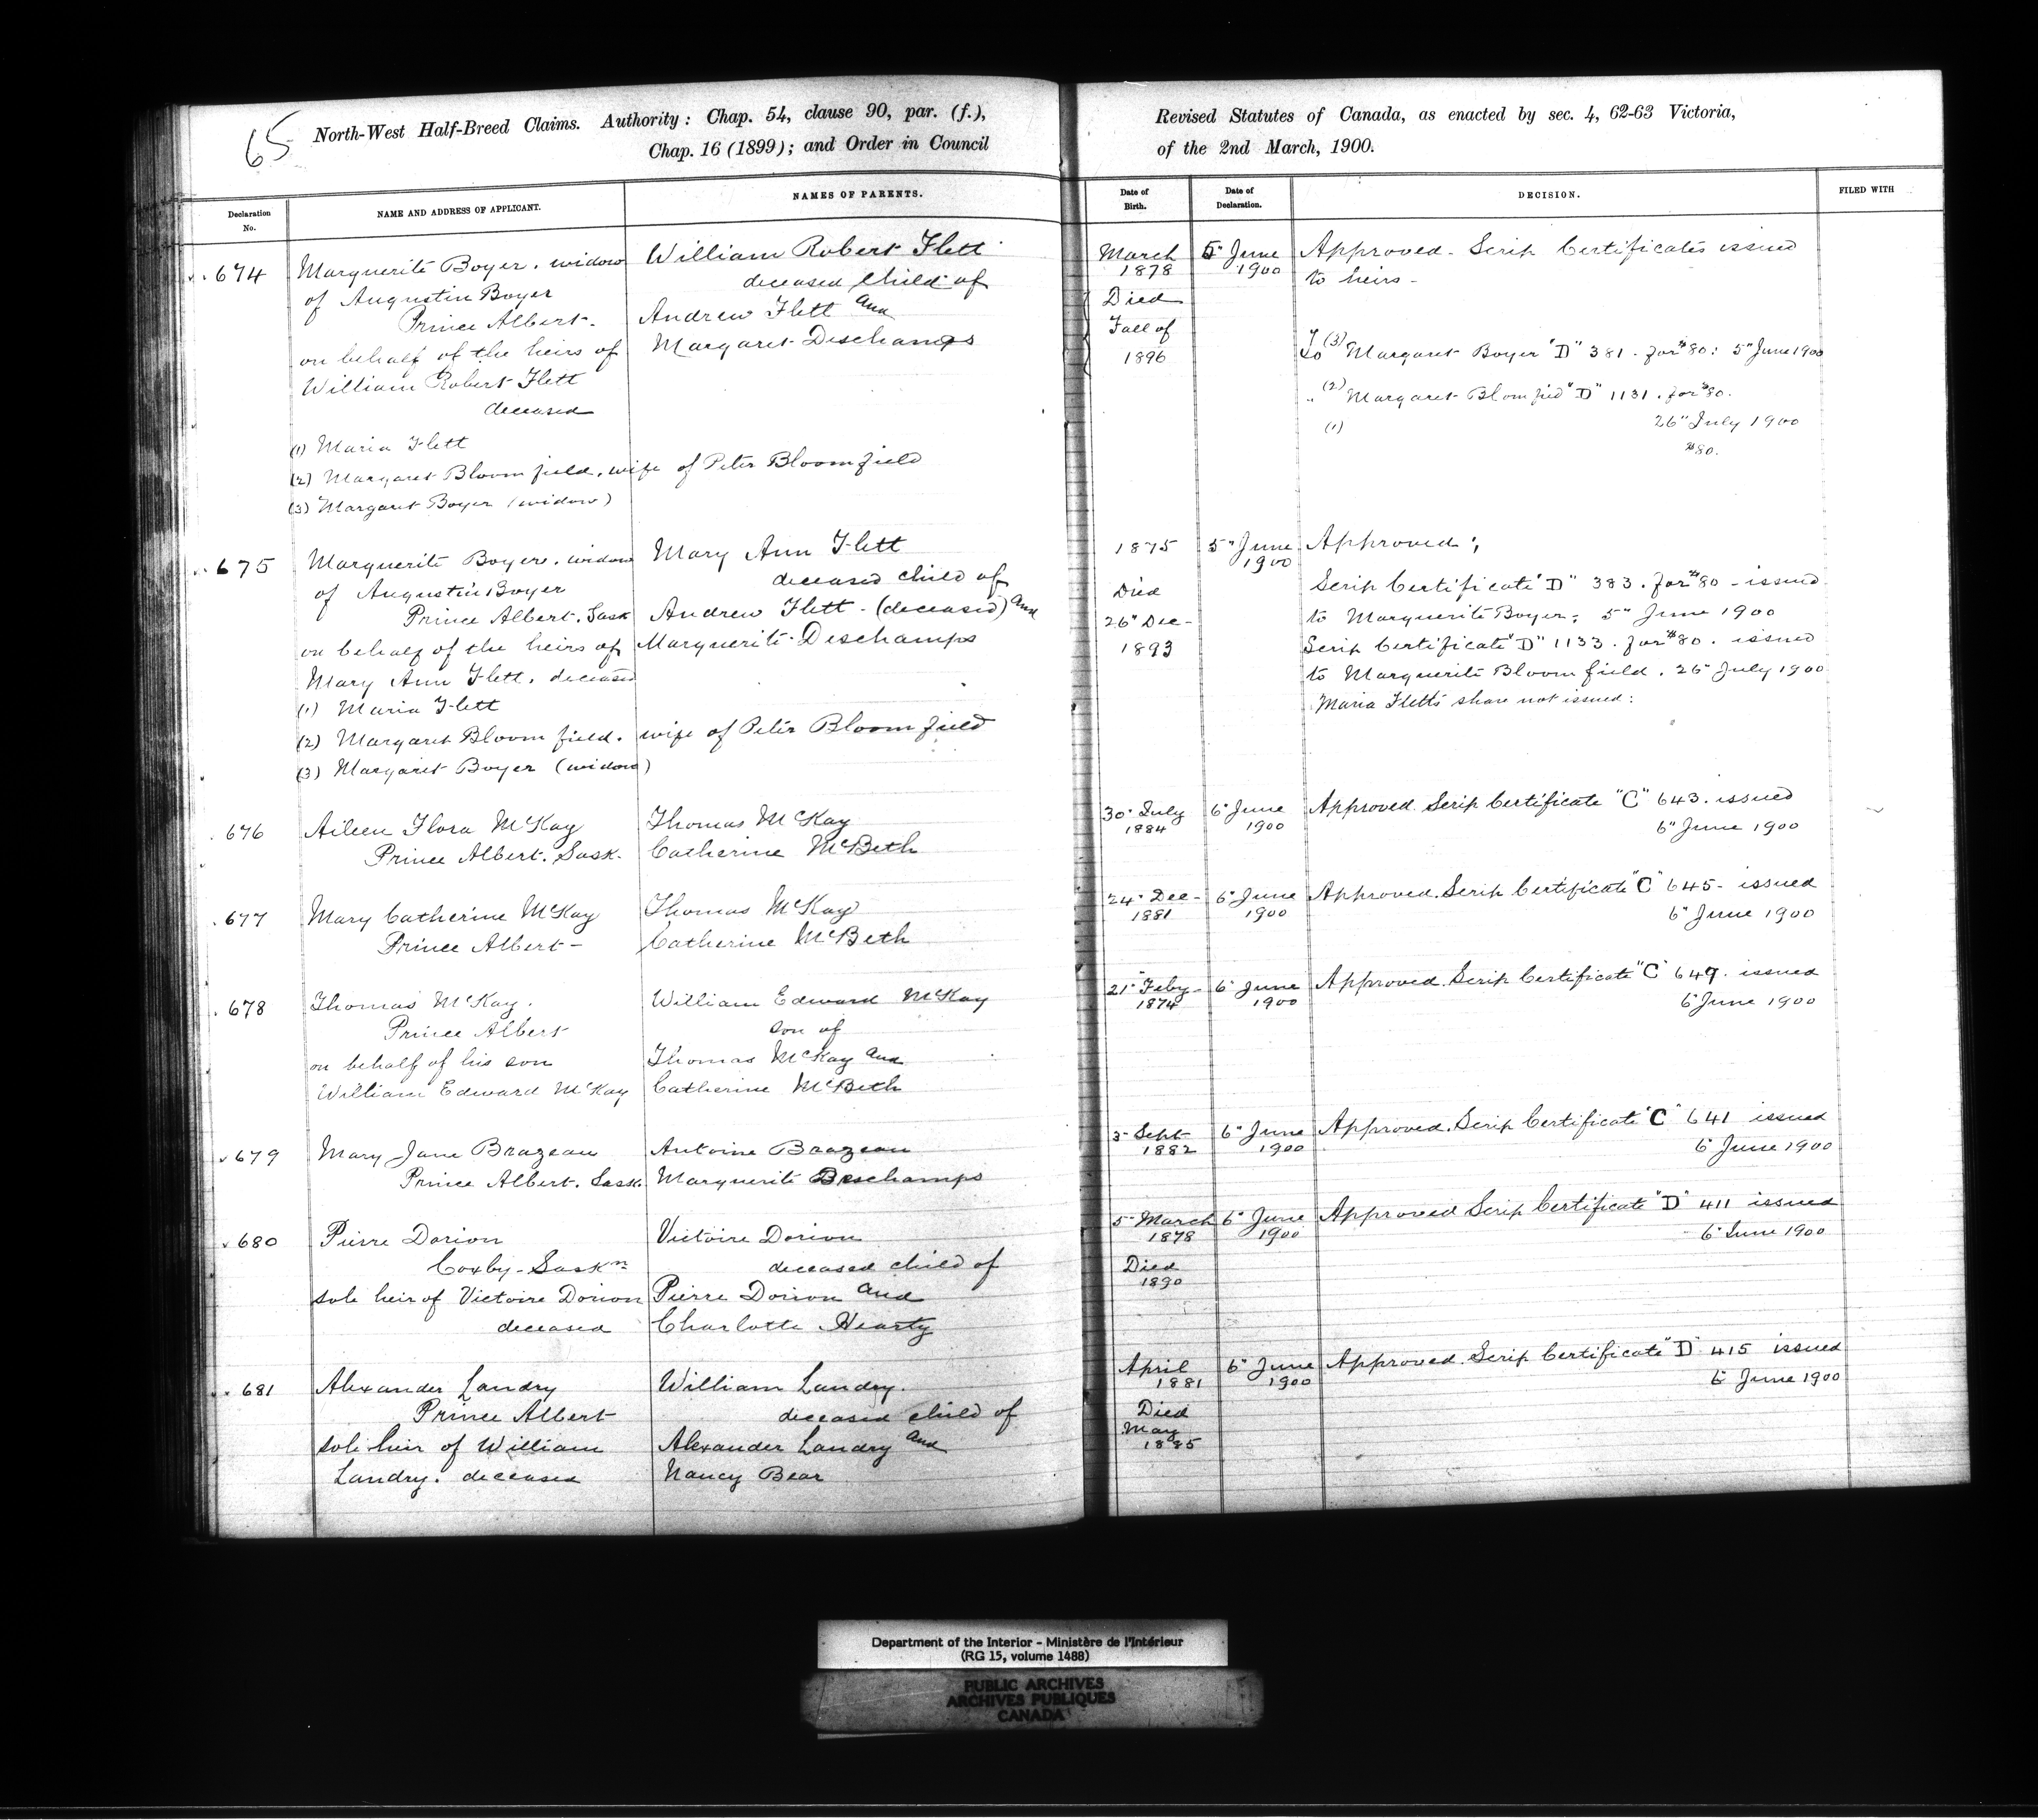 65
North-West Half-Breed Claims. Authority: Chap. 54, clause 90, par. (f.),
Chap. 16 (1899); and Order in Council
Revised Statutes of Canada, as enacted by sec. 4, 62-63 Victoria,
of the 2nd March, 1900.
Declaration No.
NAME AND ADDRESS OF APPLICANT.
NAMES OF PARENTS.
Date of Birth.
Date of Declaration.
DECISION.
FILED WITH
674
Marguerite Boyer, widow
of Augustin Boyer
Prince Albert.
on behalf of the heirs of
William Robert Flett
deceased
(1) Maria Flett
(2) Margaret Bloomfield, wife of Peter Bloomfield
(3) Margaret Boyer (widow)
William Robert Flett
deceased child of
Andrew Flett and
Margaret Deschamps
March
1878
Died
Fall of
1896
5" June
1900
Approved - Scrip Certificates issued
to heirs -
To (3) Margaret Boyer "D" 381. for $80: 5" June 1900
" (2) Margaret Blomfied "D" 1131. for $80.
26" July 1900
(1)
$80.
675
Marguerite Boyere, widow
of Augustin Boyer
Prince Albert. Sask
on behalf of the heirs of
Mary Ann Flett, deceased
(1) Maria Flett
(2) Margaret Bloomfield. wife of Peter Bloomfield
(3) Margaret Boyer (widow)
Mary Ann Flett
deceased child of
Andrew Flett - (deceased) and
Marguerite Deschamps
1875
Died
26" Dec -
1893
5" June
1900
Approved;
Scrip Certificate "D" 383. for $80 - issued
to Marguerite Boyer; 5" June 1900
Scrip Certificate "D" 1133. for $80. issued
to Marguerite Bloomfield. 26" July 1900
Maria Flett's share not issued:
676
Aileen Flora McKay
Prince Albert. Sask.
Thomas McKay
Catherine McBeth
30" July
1884
6" June
1900
Approved. Scrip Certificate "C" 643. issued
6" June 1900
677
Mary Catherine McKay
Prince Albert -
Thomas McKay
Catherine McBeth
24" Dec -
1881
6" June
1900
Approved. Scrip Certificate "C" 645 - issued
6" June 1900
678
Thomas McKay.
Prince Albert
on behalf of his son
William Edward McKay
William Edward McKay
son of
Thomas McKay and
Catherine McBeth
21" Feby -
1874
6" June
1900
Approved. Scrip Certificate "C" 649. issued
6" June 1900
679
Mary Jane Brazeau
Prince Albert. Sask.
Antoine Brazeau
Marguerite Deschamps
3" Sept
1882
6" June
1900
Approved. Scrip Certificate "C" 641 issued
6" June 1900
680
Pierre Dorion
Coxby - Saskn
sole heir of Victoire Dorion
deceased
Victoire Dorion
deceased child of
Pierre Dorion and
Charlotte Hearty
5" March
1878
Died
1890
6" June
1900
Approved Scrip Certificate "D" 411 issued
6" June 1900
681
Alexander Landry
Prince Albert
sole heir of William
Landry. deceased
William Landry.
deceased child of
Alexander Landry and
Nancy Bear
April
1881
Died
May
1885
6" June
1900
Approved. Scrip Certificate "D" 415 issued
6" June 1900
Department of the Interior - Ministère de l'Intérieur
(RG 15, volume 1488)
PUBLIC ARCHIVES
ARCHIVES PUBLIQUES
CANADA